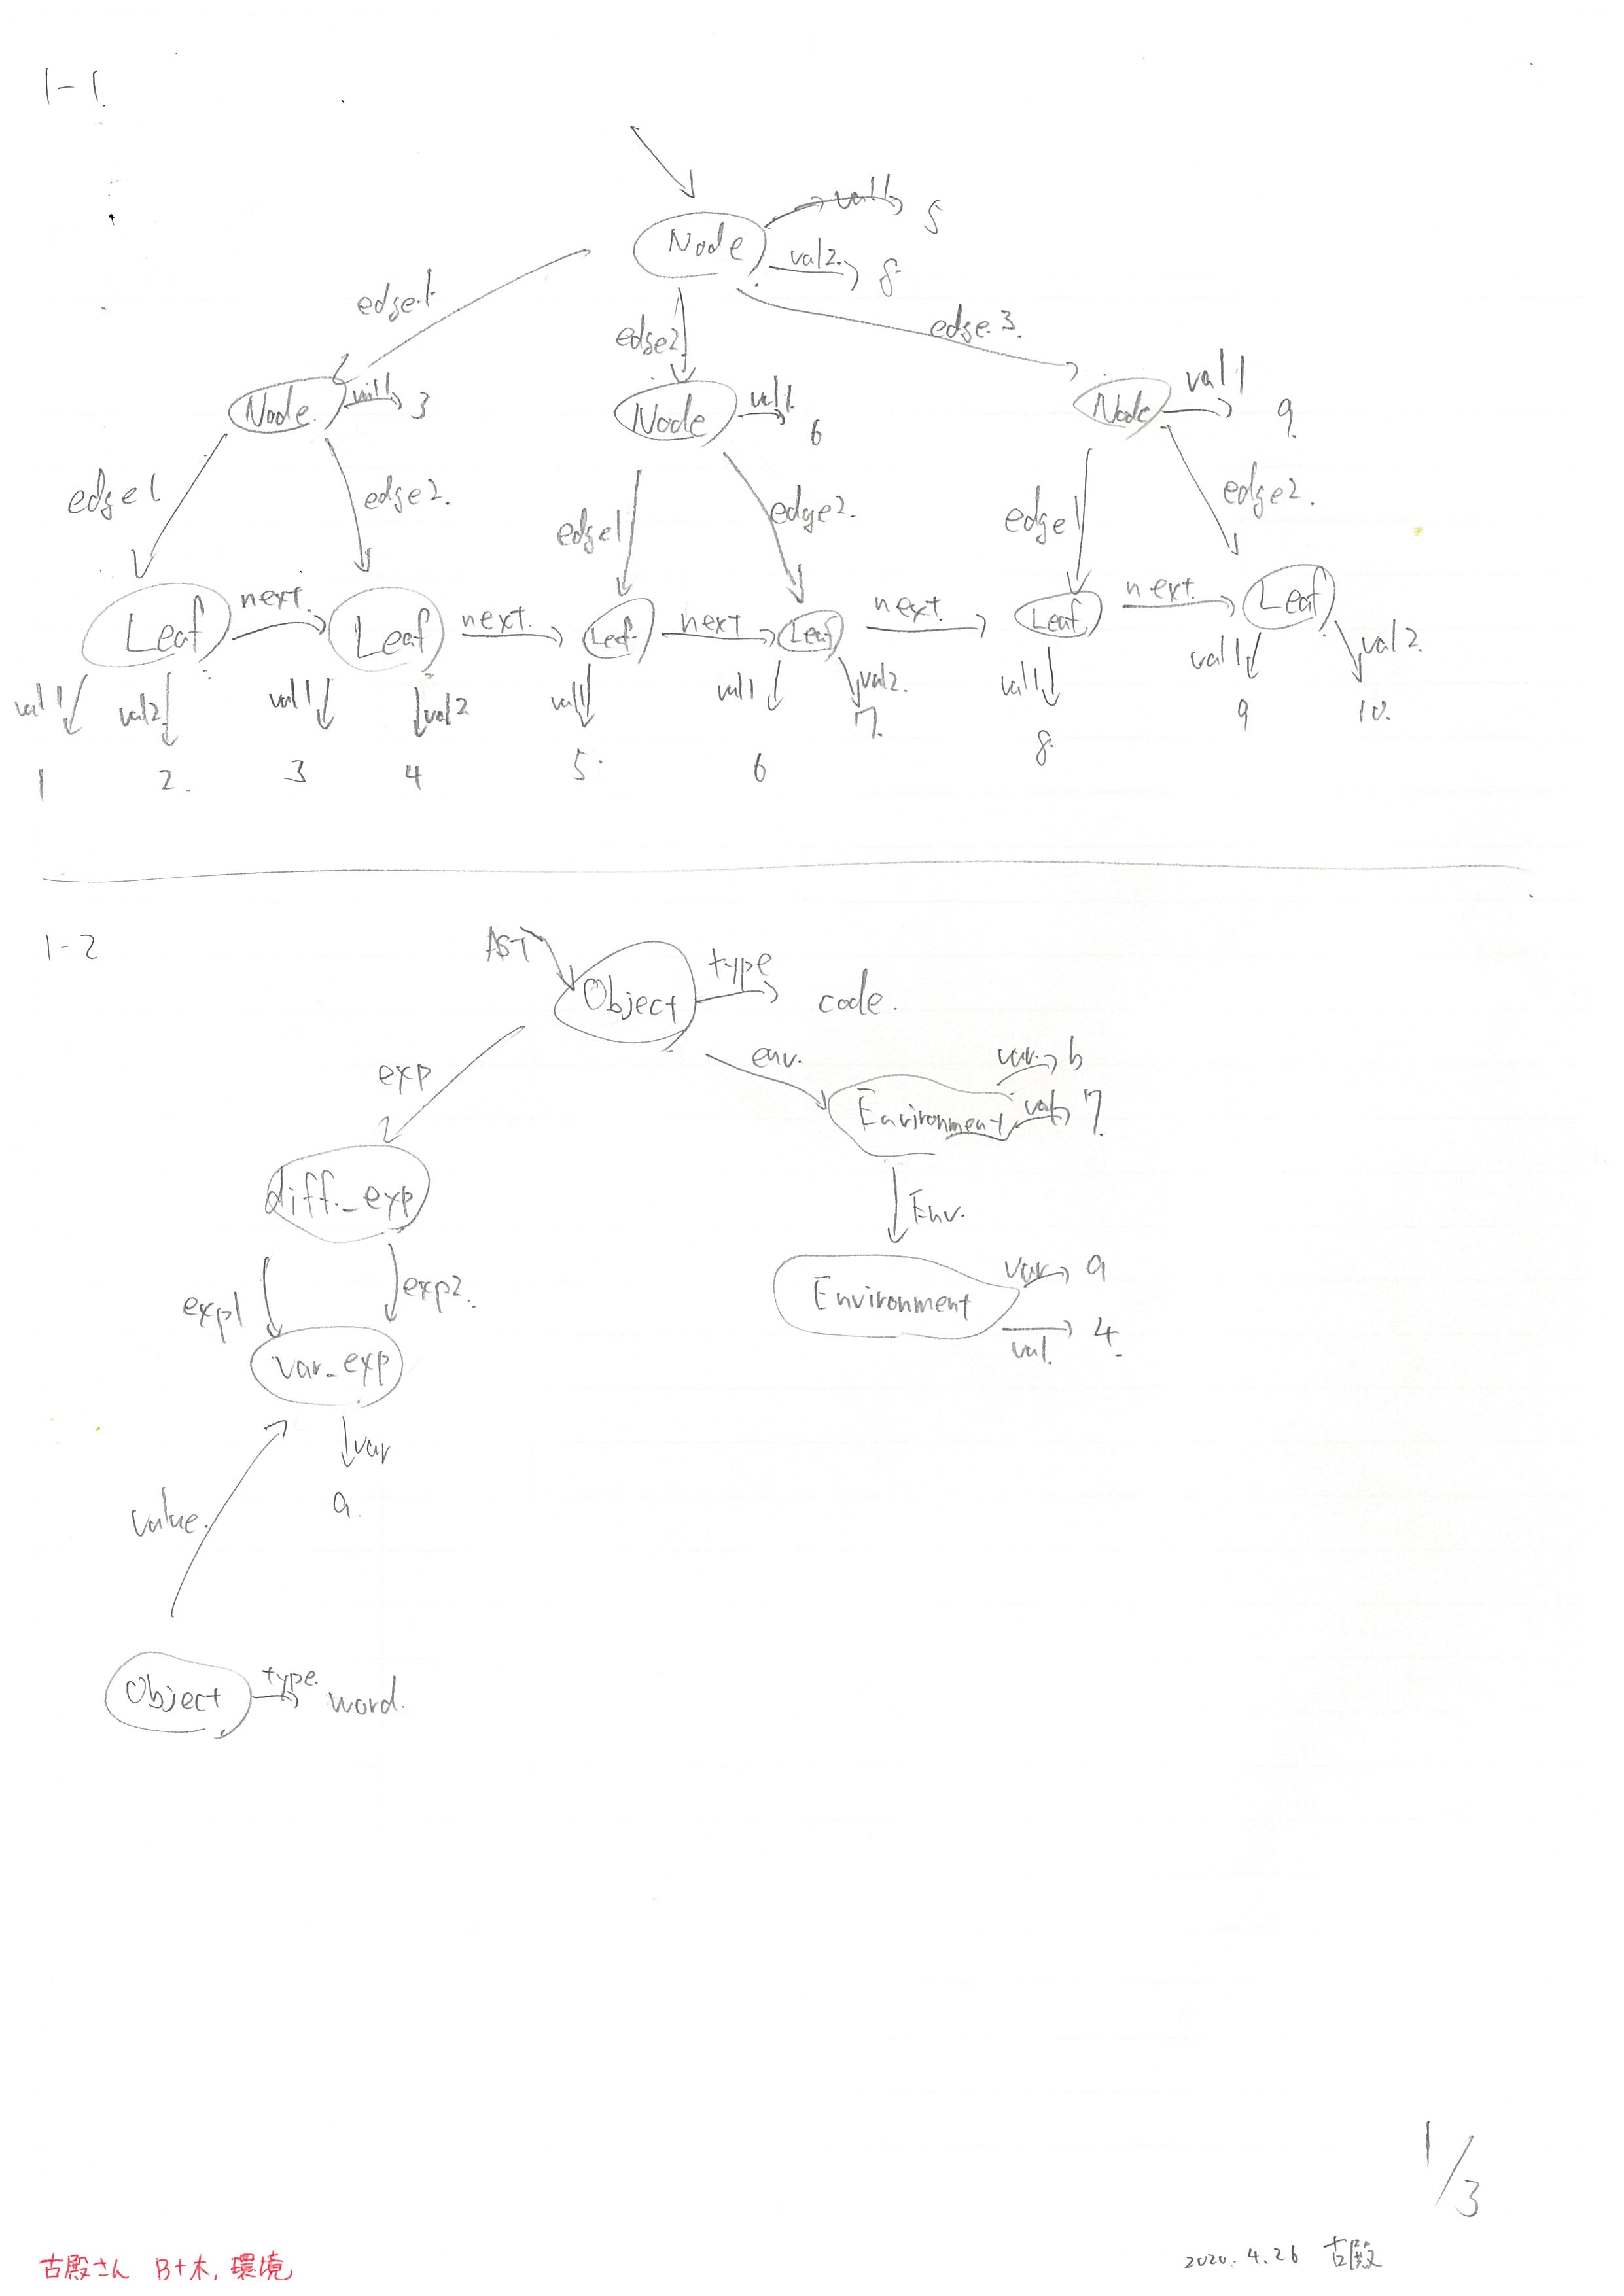 1-1.
val1 5
Node
val2. 8.
edge.1
edge2
edge.3.
Node. val1 3
Node val1. 6
Node val1 9.
edge1.
edge2.
edge1
edge2.
edge1
edge2.
Leaf next. Leaf next. Leaf. next Leaf next. Leaf next. Leaf
val1 val2 val1 val2 val1 val1 val2. val1 val1 val2.
1 2. 3 4 5. 6 7. 8. 9 10.
1-2
AST Object type code.
exp
env.
var. b
Environment val 7.
diff._exp
Env.
exp1 exp2.
Environment var a
val. 4.
var_exp
var
a.
value.
Object type. word.
1/3
古殿さん B+木, 環境
2020. 4. 26 古殿